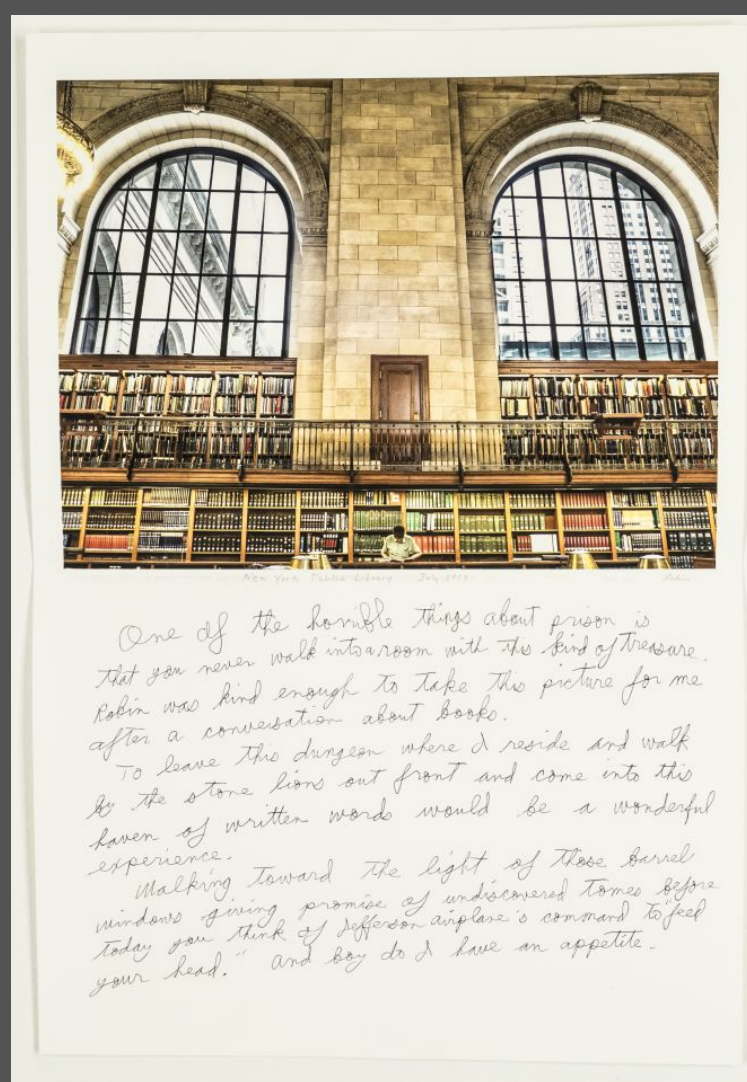 New York Public Library July 2019
Robin
One of the horrible things about prison is
that you never walk into a room with this kind of treasure.
Robin was kind enough to take this picture for me
after a conversation about books.
To leave this dungeon where I reside and walk
by the stone lions out front and come into this
haven of written words would be a wonderful
experience.
Walking toward the light of those barrel
windows giving promise of undiscovered tomes before
today you think of Jefferson airplane's command to "feed
your head." and boy do I have an appetite.